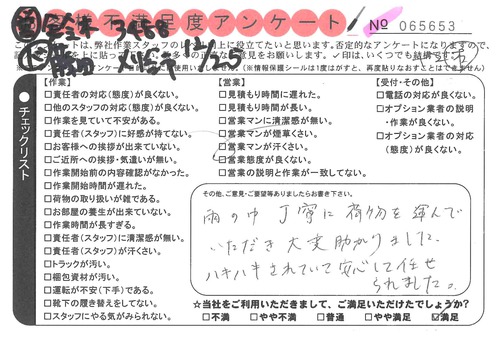 お客様不満足度アンケート
No 065653
3468
12/25
【作業】
□責任者の対応(態度)が良くない。
□他のスタッフの対応(態度)が良くない。
□作業を見ていて不安がある。
□責任者(スタッフ)に好感が持てない。
□お客様への挨拶が出来ていない。
□ご近所への挨拶・気遣いが無い。
□作業開始前の内容確認がなかった。
□作業開始時間が遅れた。
□荷物の取り扱いが雑である。
□お部屋の養生が出来ていない。
□作業時間が長すぎる。
□責任者(スタッフ)に清潔感が無い。
□責任者(スタッフ)が汗くさい。
□トラックが汚い。
□梱包資材が汚い。
□運転が不安(下手)である。
□靴下の履き替えをしてない。
□スタッフにやる気がみられない。
【営業】
□見積もり時間に遅れた。
□見積もり時間が長い。
□営業マンに清潔感が無い。
□営業マンが煙草くさい。
□営業マンが汗くさい。
□営業態度が良くない。
□営業の説明と作業が一致してない。
【受付・その他】
□電話の対応が良くない。
□オプション業者の説明
・作業が良くない。
□オプション業者の対応
(態度)が良くない。
チェックリスト
その他、ご意見・ご要望等ありましたらお書き下さい。
雨の中 丁寧に荷物を運んで
いただき大変助かりました。
ハキハキされていて安心して任せ
られました。
☆当社をご利用いただきまして、ご満足いただけたでしょうか?
□不満 □やや不満 □普通 □やや満足 ☑満足